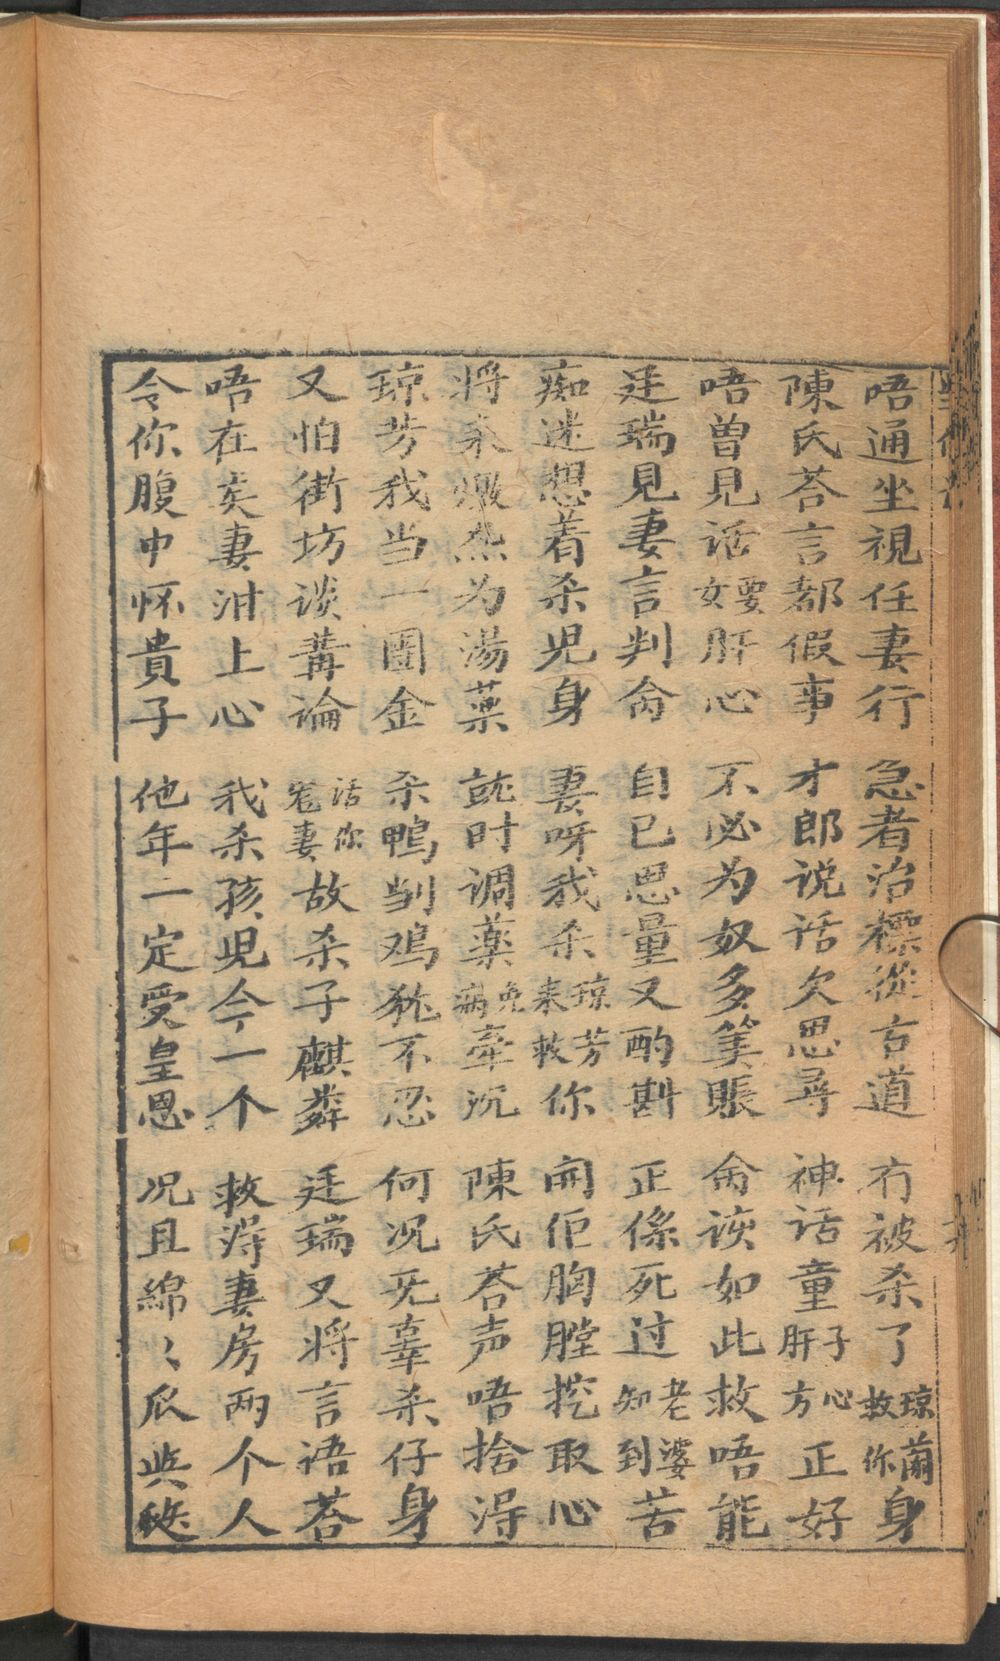 唔通坐視任妻行　急者治標從古道　冇被杀了琼蘭救你身
陳氏荅言都假事　才郎说话欠思尋　神话童子肝心方正好
唔曾見话要女肝心　不必为奴多筭賬　禽该如此救唔能
廷瑞見妻言判禽　自己思量又酌斟　正係死过老婆知到苦
痴迷想着杀児身　妻呀我杀琼芳来救你　開佢胸膛挖取心
将来燉杰为湯薬　就时调薬免病牽沉　陳氏荅声唔捨淂
琼芳我当一圖金　杀鴨㓥鸡犹不忍　何况无辜杀仔身
又怕街坊谈講論　话你寃妻故杀子麒麟　廷瑞又将言语荅
唔在矣妻泔上心　我杀孩児今一个　救淂妻房两个人
令你腹中怀貴子　他年一定受皇恩　况且綿〻瓜㷠